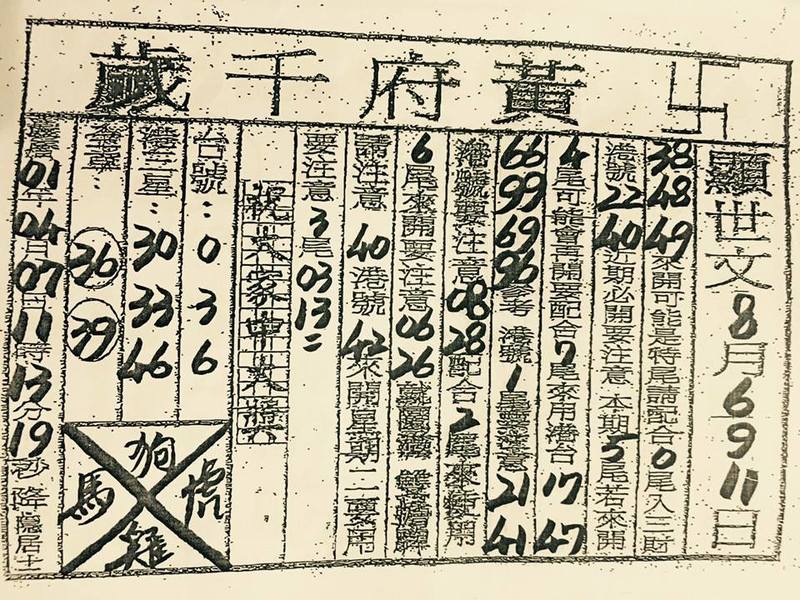 黃府千歲
顯世文8月6 9 11日
38 48 49來開可能是特尾請配合0尾入三財
港號22 40近期必開要注意 本期5尾若來開
4尾可能會再開要配合7尾來用港台 17 47
66 99 69 96參考 港號1尾要注意 21 41
港號要注意08 28配合2尾來
6尾來開要注意06 26
請注意 40港號42來開星期二二要用
要注意 3尾03 13二
祝大家中大獎
台號：0 3 6
港三星：30 33 46
36 39
01年04月07日11時13分19秒降隱居士
狗
馬 虎
雞